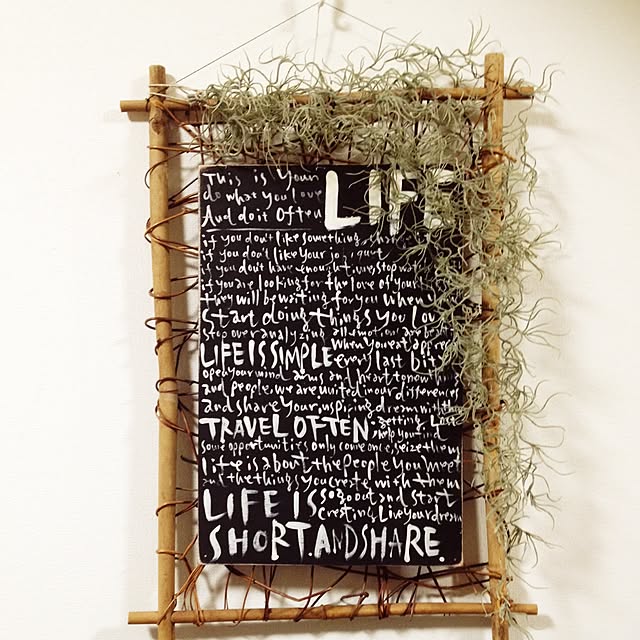 This is Your LIFE
do what you love
And do it often
if you don't like something, chan
if you don't like your jo, quit
if you don't have enought, stop wat
if you are looking for the love of your
they will be waiting for you when
start doing things you Lov
stop over analyzing all emotions are beauti
LIFE IS SIMPLE when you eat apprec
every last bite
open your mind arms and heart to new things
and people, we are united in our differences
and share your inspiring dream with the
TRAVEL OFTEN; getting Lost
help you find
some opportunities only come once, seize them
life is about the People You meet
and the things You create with them
LIFE IS so go out and start
creating. Live your dream
SHORT. AND SHARE.